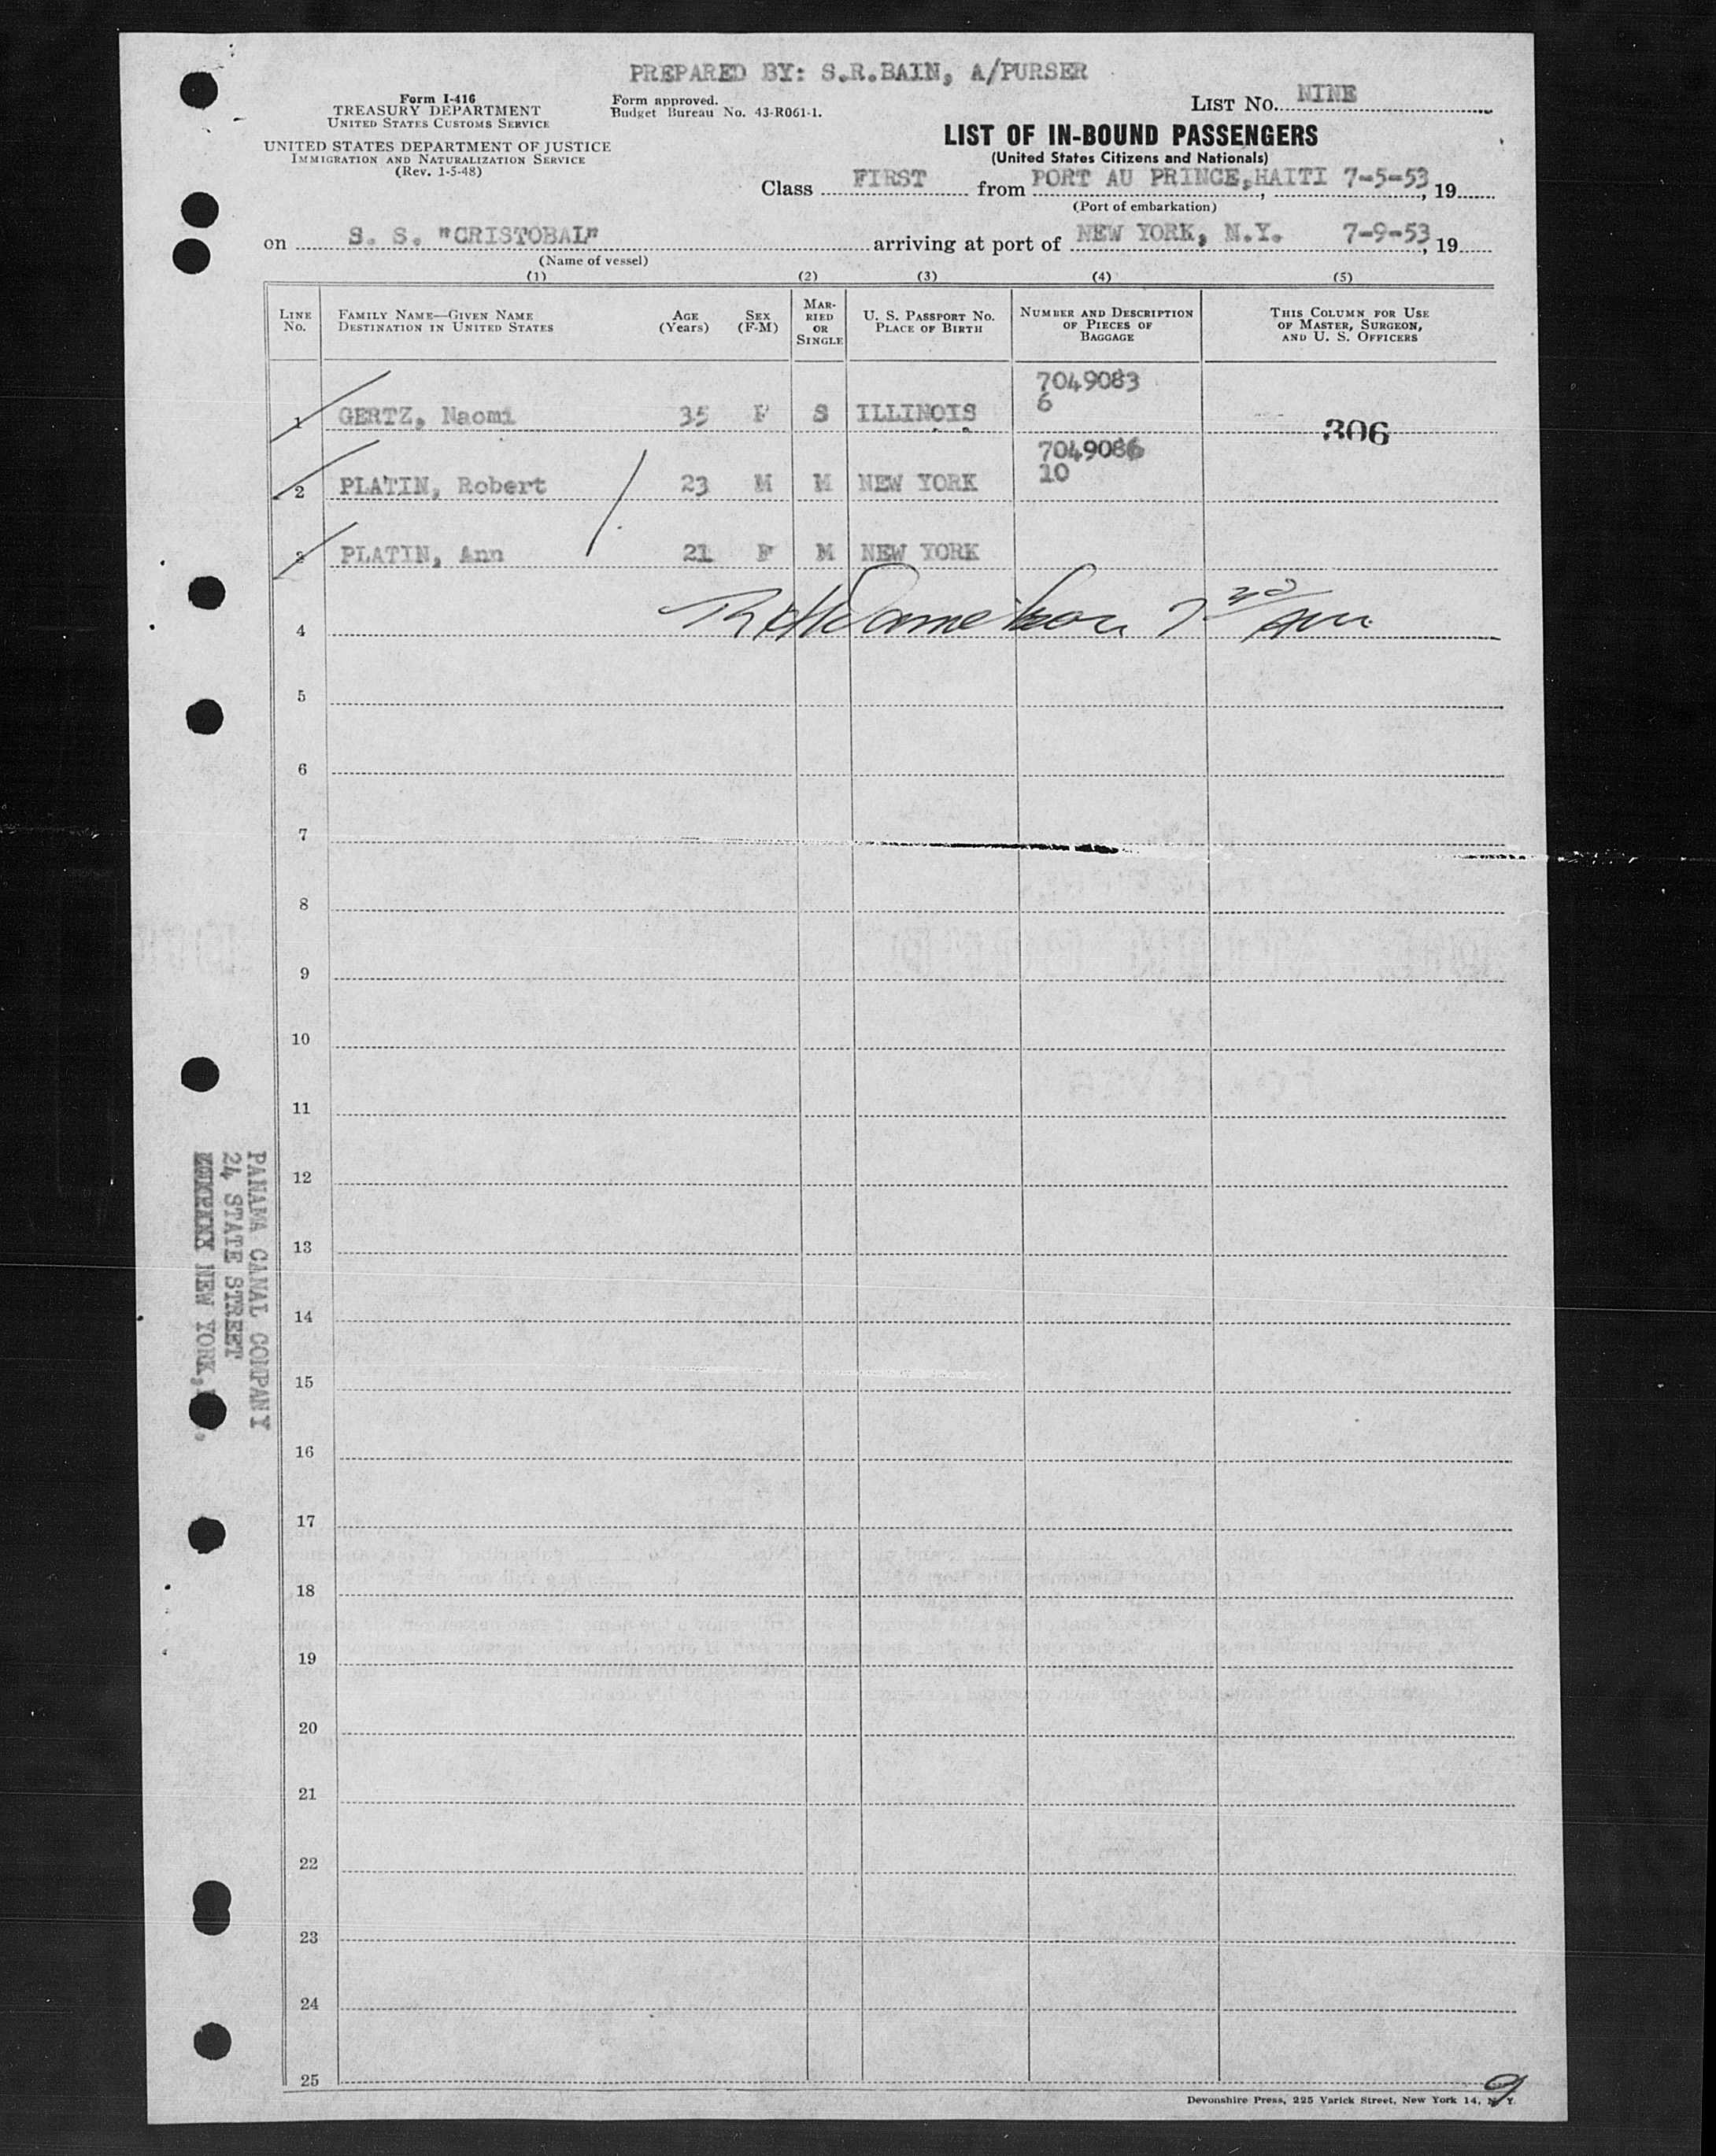 PREPARED BY: S.R.BAIN, A/PURSER
Form I-416
TREASURY DEPARTMENT
UNITED STATES CUSTOMS SERVICE
UNITED STATES DEPARTMENT OF JUSTICE
IMMIGRATION AND NATURALIZATION SERVICE
(Rev. 1-5-48)
Form approved.
Budget Bureau No. 43-R061-1.
LIST NO. NINE
LIST OF IN-BOUND PASSENGERS
(United States Citizens and Nationals)
Class FIRST from PORT AU PRINCE, HAITI 7-5-53, 19
(Port of embarkation)
on S. S. "CRISTOBAL" arriving at port of NEW YORK, N.Y. 7-9-53, 19
(Name of vessel)
(1) (2) (3) (4) (5)
LINE NO.
FAMILY NAME—GIVEN NAME
DESTINATION IN UNITED STATES
AGE (Years)
SEX (F-M)
MARRIED OR SINGLE
U. S. PASSPORT NO.
PLACE OF BIRTH
NUMBER AND DESCRIPTION OF PIECES OF BAGGAGE
THIS COLUMN FOR USE OF MASTER, SURGEON, AND U. S. OFFICERS
7049083
6
1 GERTZ, Naomi 35 F S ILLINOIS 306
7049086
10
2 PLATIN, Robert 23 M M NEW YORK
3 PLATIN, Ann 21 F M NEW YORK
4
5
6
7
8
9
10
11
12
13
14
15
16
17
18
19
20
21
22
23
24
25
PANAMA CANAL COMPANY
24 STATE STREET
NEW YORK,
9
Devonshire Press, 225 Varick Street, New York 14, N. Y.